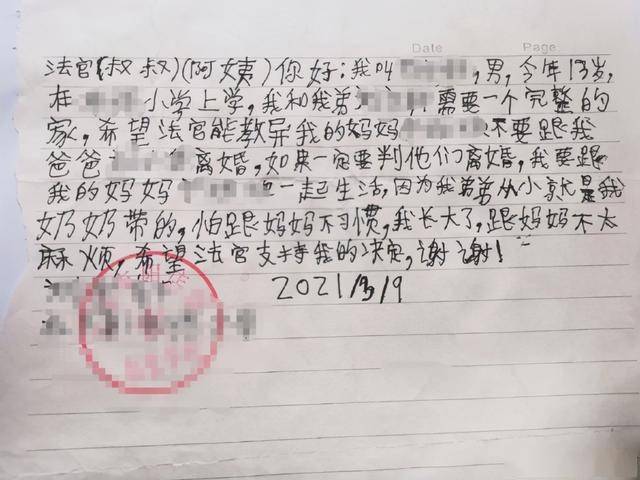 Date Page
法官(叔叔)(阿姨)你好:我叫,男,今年13岁,
在小学上学,我和我弟需要一个完整的
家,希望法官能教导我的妈妈不要跟我
爸爸离婚,如果一定要判他们离婚,我要跟
我的妈妈一起生活,因为我弟弟从小就是我
奶奶带的,怕跟妈妈不习惯,我长大了,跟妈妈不太
麻烦,希望法官支持我的决定,谢谢!
2021/3/9